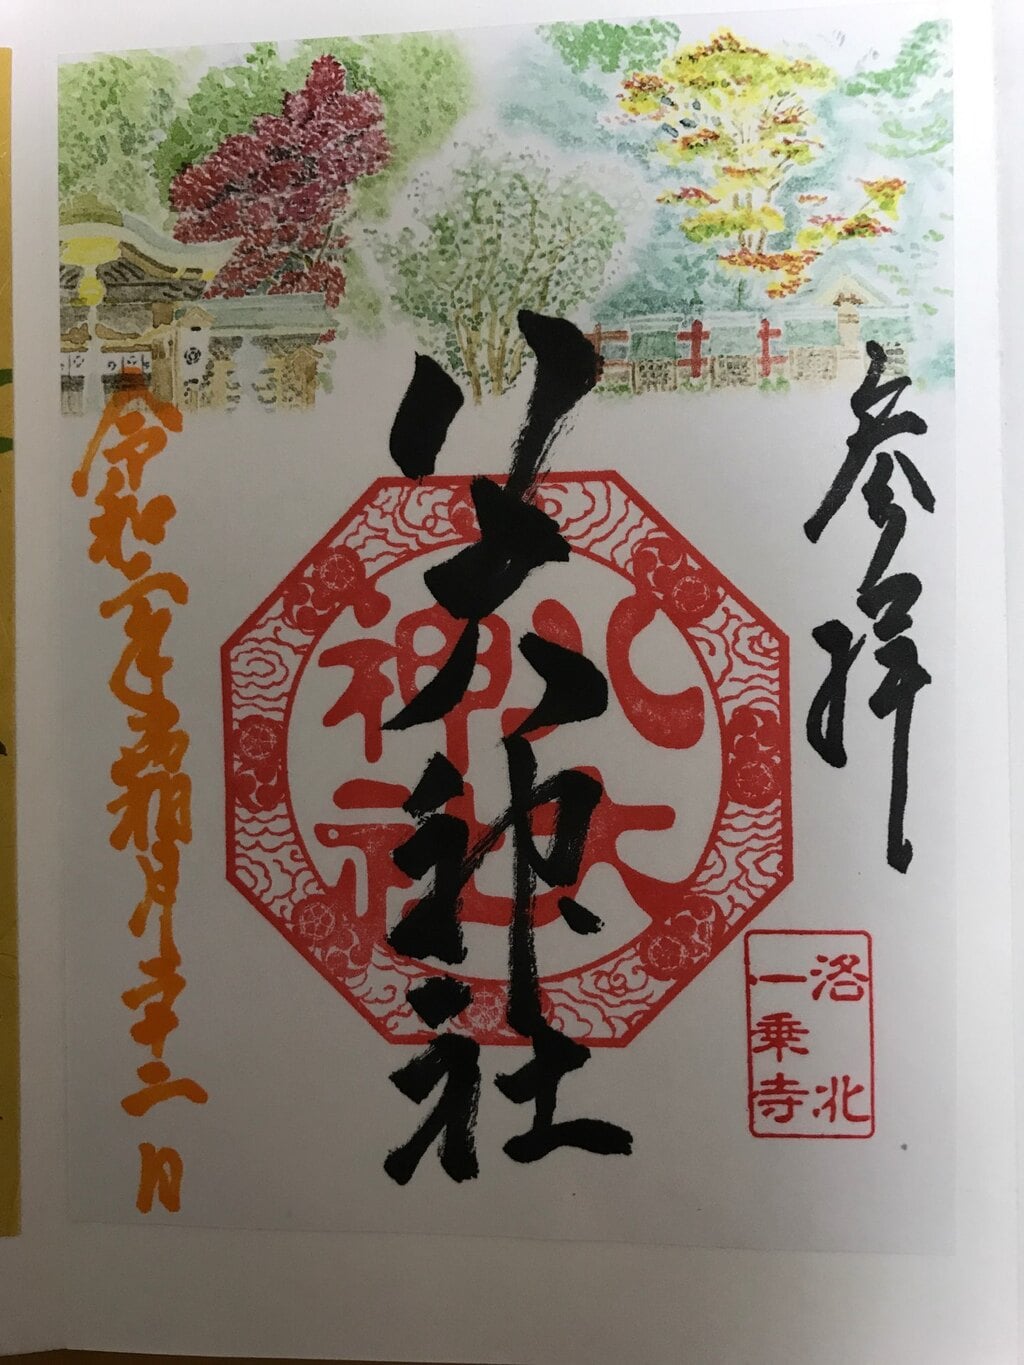 参拝
八大神社
八大
神社
洛北
一乗寺
令和年霜月二日